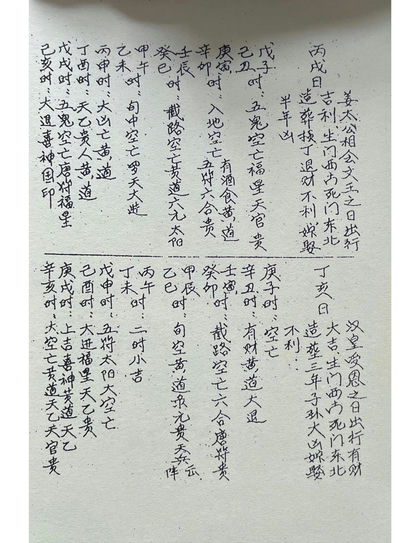 丙戌日
姜太公相会文王之日出行
吉利生门西方死门东北
造葬横丁退财不利嫁娶
半年凶
戊子时：五鬼空亡福星天官贵
己丑
庚寅时：有酒食黄道
辛卯时：入地空亡五符六合贵
壬辰时：截路空亡黄道六元太阳
癸巳
甲午时：旬中空亡罗天大进
乙未
丙申时：大凶亡黄道
丁酉时：天乙贵人黄道
戊戌时：五鬼空亡唐符福星
己亥时：大退喜神国印
丁亥日
汉皇受恩之日出行有财
大吉生门西方死门东北
造葬三年子孙大凶嫁娶
不利
庚子时：空亡
辛丑时：有财黄道大退
壬寅时：截路空亡六合唐符贵
癸卯
甲辰时：旬空黄道飛元贵天兵云阵
乙巳
丙午时：二时小吉
丁未
戊申时：五符太阳大空亡
己酉时：大进福星天乙贵
庚戌时：上吉喜神黄道天乙
辛亥时：大空亡黄道天乙天官贵